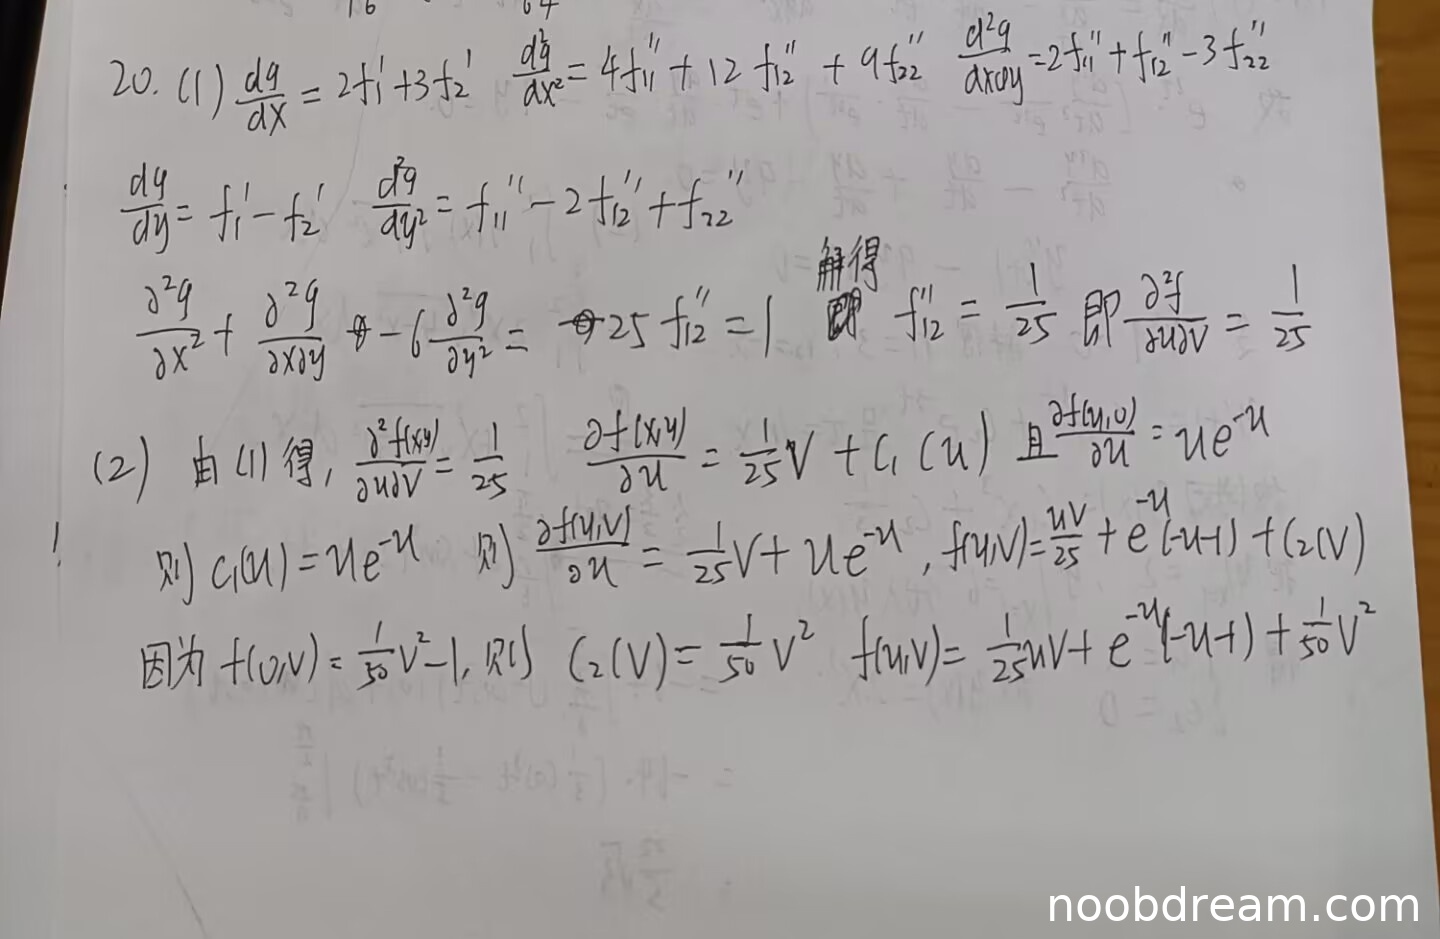 16 64
20. (1) dg/dx = 2f₁′+3f₂′ d²g/dx² = 4f₁₁″+12f₁₂″+9f₂₂″ d²g/dxdy = 2f₁₁″+f₁₂″-3f₂₂″
dg/dy = f₁′-f₂′ d²g/dy² = f₁₁″-2f₁₂″+f₂₂″
解得
∂²g/∂x² + ∂²g/∂x∂y -6 ∂²g/∂y² = 25f₁₂″=1 f₁₂″ = 1/25 即 ∂²f/∂u∂v = 1/25
(2) 由(1)得, ∂²f(x,y)/∂u∂v = 1/25 ∂f(x,y)/∂u = 1/25 v + C₁(u) 且 ∂f(u,0)/∂u = ue^-u
则 C₁(u) = ue^-u 则 ∂f(u,v)/∂u = 1/25 v + ue^-u, f(u,v) = uv/25 + e^-u(-u-1) + C₂(v)
因为 f(0,v) = 1/50 v²-1, 则 C₂(v) = 1/50 v² f(u,v) = 1/25 uv + e^-u(-u-1) + 1/50 v²
noobdream.com